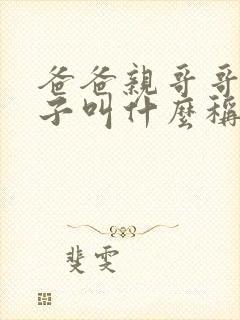 爸爸親哥哥
子叫什麼稱
斐雯